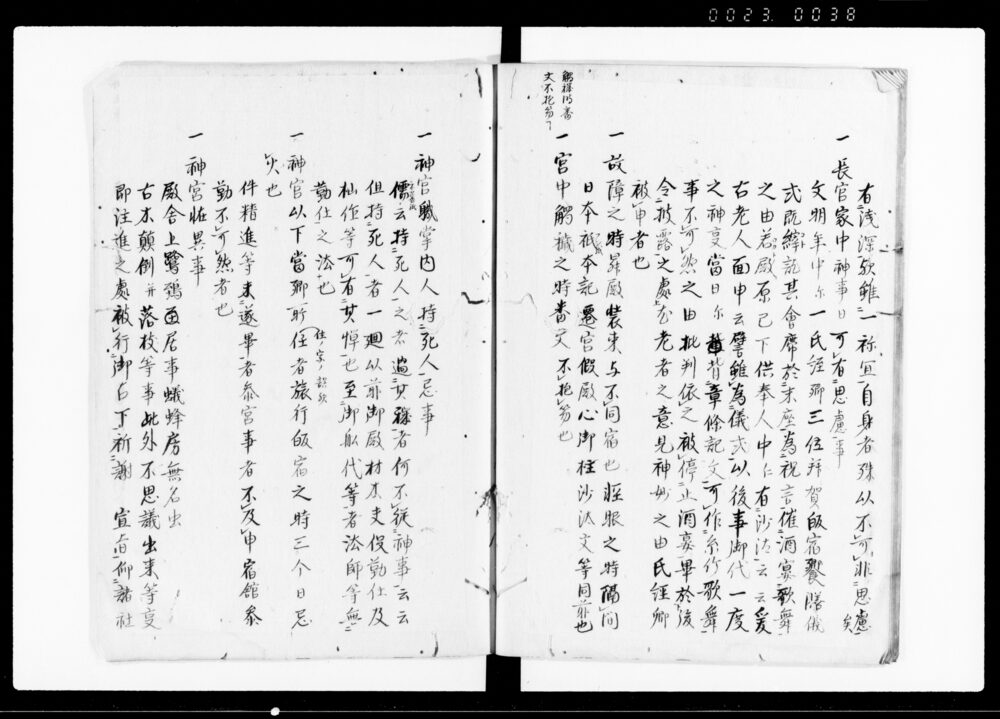 0023. 0038
有浅深歟雖一祢宜自身者殊以不可非思慮矣
一長官家中神事日可有思慮事
文明年中尓一氏経卿三位拝賀皈宿饗膳儀
式既終訖其會席於末座為祝言催酒宴歌舞
之由若殿原已下供奉人中仁有沙汰云云爰
古老人面申云譬雖為儀式以後事御代一度
之神事當日尓背章條記文可作糸竹歌舞
事不可然之由批判依之被停止酒宴畢於後
令披露之處古老者之意見神妙之由氏経卿
被申者也
一故障之時昇殿装束与不同宿也
日本祇本記遷宮假殿心御柱沙汰文等同前也
觸穢行番
文不抱
一宮中觸穢之時番文不抱也
一神官職掌内人持死人忌事
儒云持死人之者過其穢者何不従神事云云
但持死人者一廻以前御殿材木夫役勤仕及
杣作等可有其憚也至御舩代等者法師等無
勤仕之法也
一神官以下當郷貯住者旅行皈宿之時三个日忌
火也
件精進等未遂畢者参宮事者不及申宿館参
勤不可然者也
一神宮恠異事
殿舎上鷺鵄酉居事蟻蜂房無名虫
古木顛倒并落枝等事此外不思議出来等事
即注進之處被行御占下祈謝宣旨仰諸社